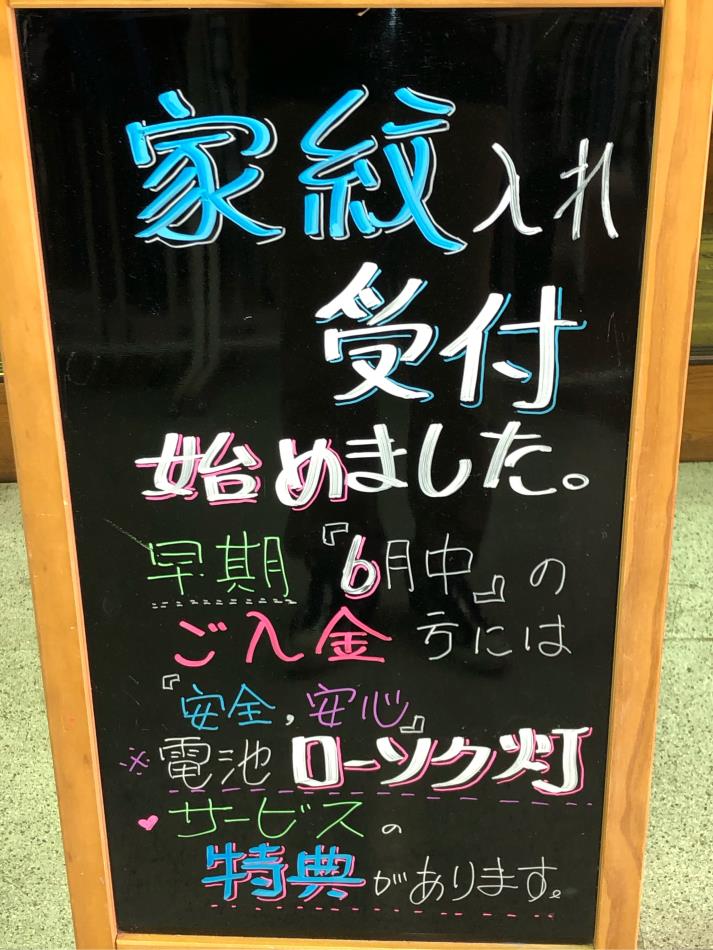 家紋入れ
受付
始めました。
早期『6月中』の
ご入金方には
『安全,安心』
※電池ローソク灯
♥サービスの
特典があります。